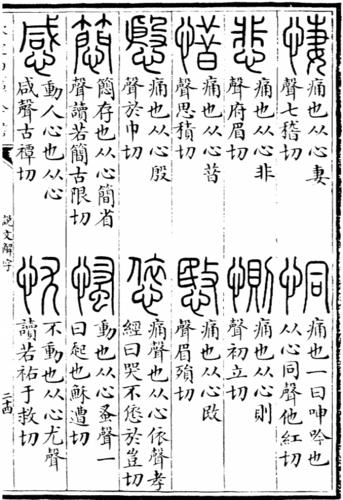 悽 痛也从心妻
聲七稽切
恫 痛也一曰呻吟也
从心同聲他紅切
悲 痛也从心非
聲府眉切
惻 痛也从心則
聲初立切
惜 痛也从心昔
聲思積切
愍 痛也从心敃
聲眉殞切
慇 痛也从心殷
聲於巾切
㥋 痛聲也从心依聲孝
經曰哭不㥋於豈切
簡存也从心簡省
聲讀若簡古限切
慅 動也从心蚤聲一
曰起也穌遭切
感 動人心也从心
咸聲古禫切
忧 不動也从心尤聲
讀若祐于救切
說文解字